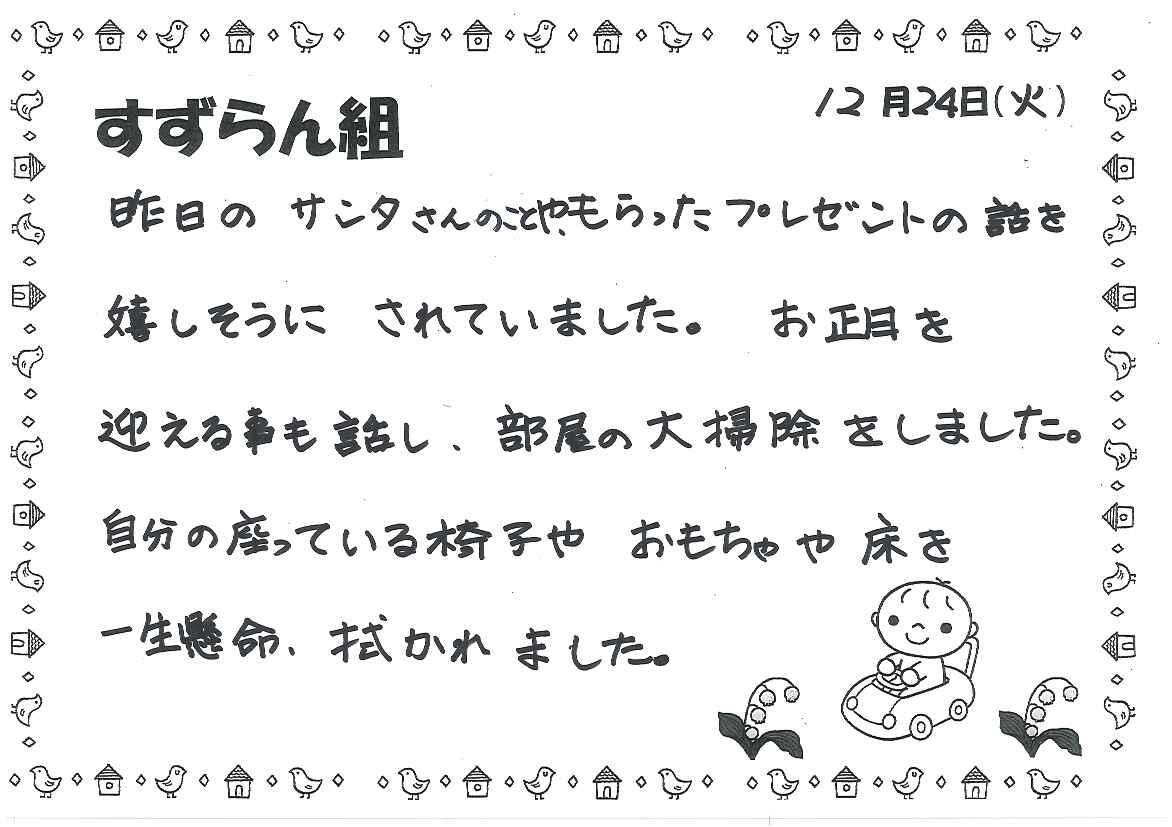 すずらん組
12月24日(火)
昨日の サンタさんのことや、もらったプレゼントの話を
嬉しそうに されていました。 お正月を
迎える事も話し、部屋の大掃除をしました。
自分の座っている椅子や おもちゃや床を
一生懸命、拭かれました。